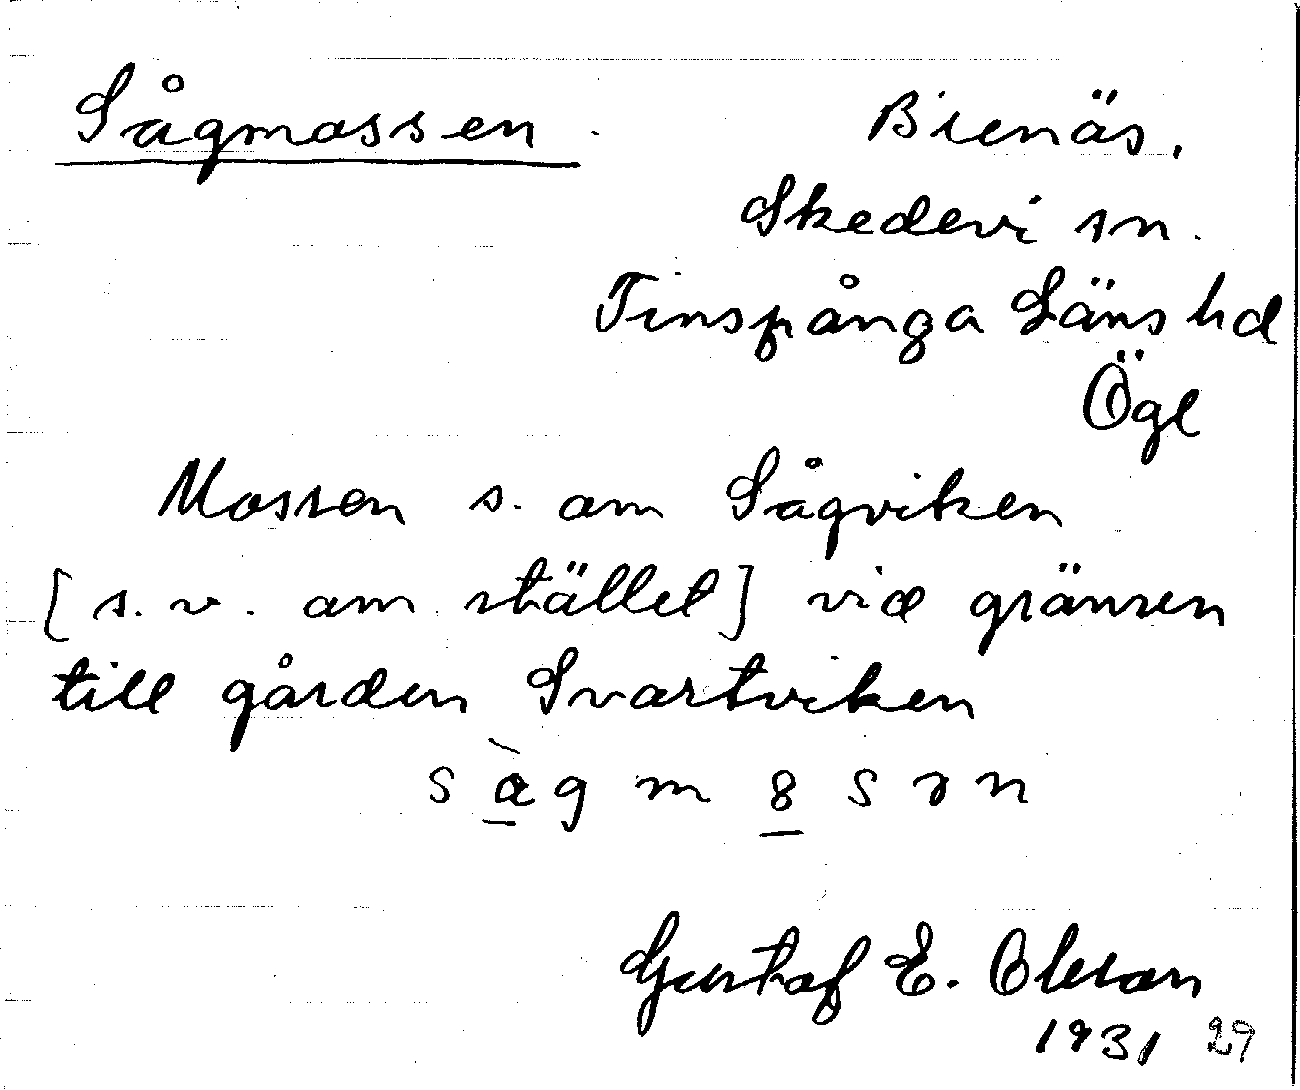 Sågmossen.
Bienäs,
Skedevi sn.
Finspånga Läns hd
Ögl
Mossen s. om Sågviken
[s.v. om stället] vid gränsen
till gården Svartviken
Gustaf E. Olsson
1931 29